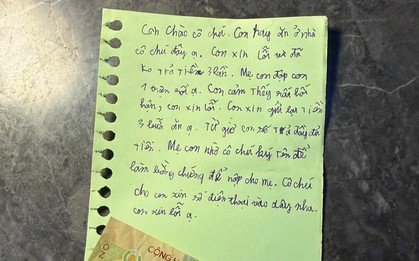 Con chào cô chú. Con hay ăn ở nhà
cô chú đây ạ. Con xin lỗi vì đã
ko trả tiền 3 lần. Mẹ con đập con
1 trận rồi ạ. Con cảm thấy rất hối
hận, con xin lỗi. Con xin gửi lại tiền
3 buổi ăn ạ. Từ giờ con sẽ trả đầy đủ
tiền. Mẹ con nhờ cô chú ký tên để
làm bằng chứng để nộp cho mẹ. Cô chú
cho con xin số điện thoại vào đây nha.
con xin lỗi ạ.
CỘNG